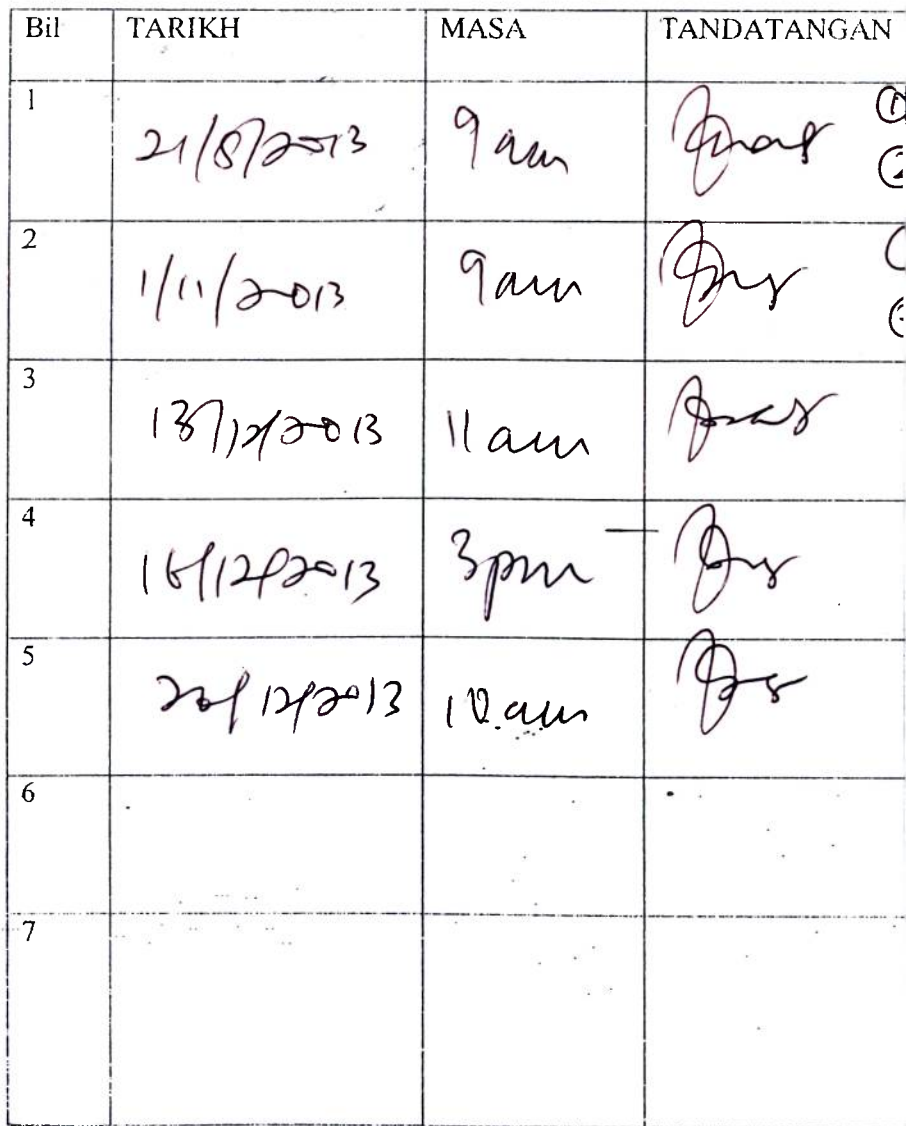 Bil TARIKH MASA TANDATANGAN
1 21/8/2013 9 am ① ②
2 1/11/2013 9 am
3 13/12/2013 11 am
4 16/12/2013 3 pm
5 12/2013 10 am
6
7